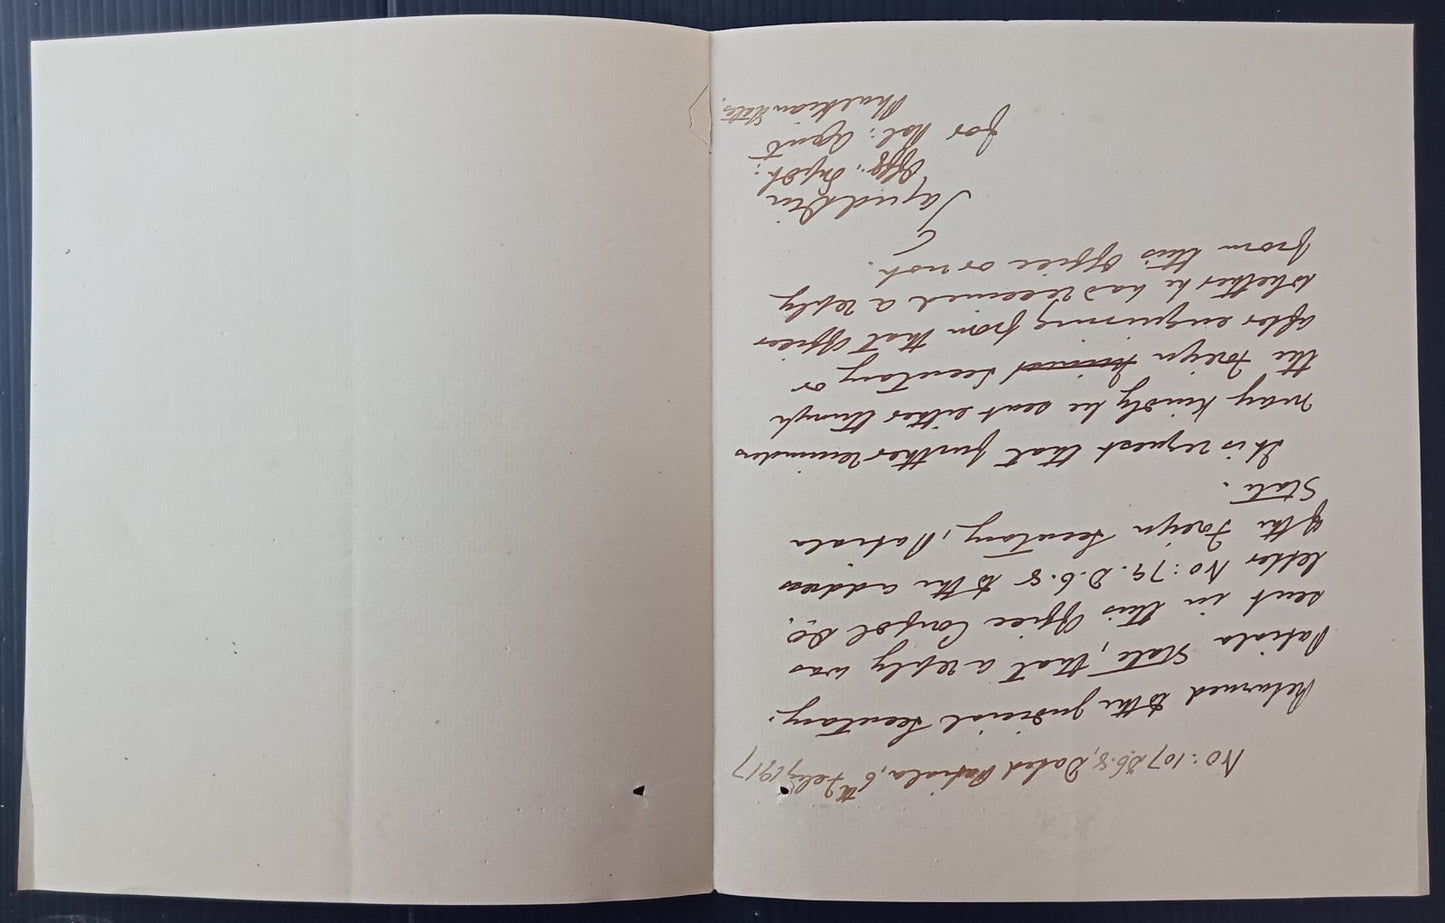 No: 107. D6.8, Dated Patiala, 6th Feby 1917
Returned to the Judicial Secretary,
Patiala State, that a reply was
sent in this Office
letter No: 79. D.6.8 to the address
of the Foreign Secretary, Patiala
State.
It is request that further reminders
may kindly be sent either through
the Foreign Secretary or
after enquiring from that officer
whether he has received a reply
from this office or not.
Offg. Supdt:
for Pol: Agent
Phulkian States.